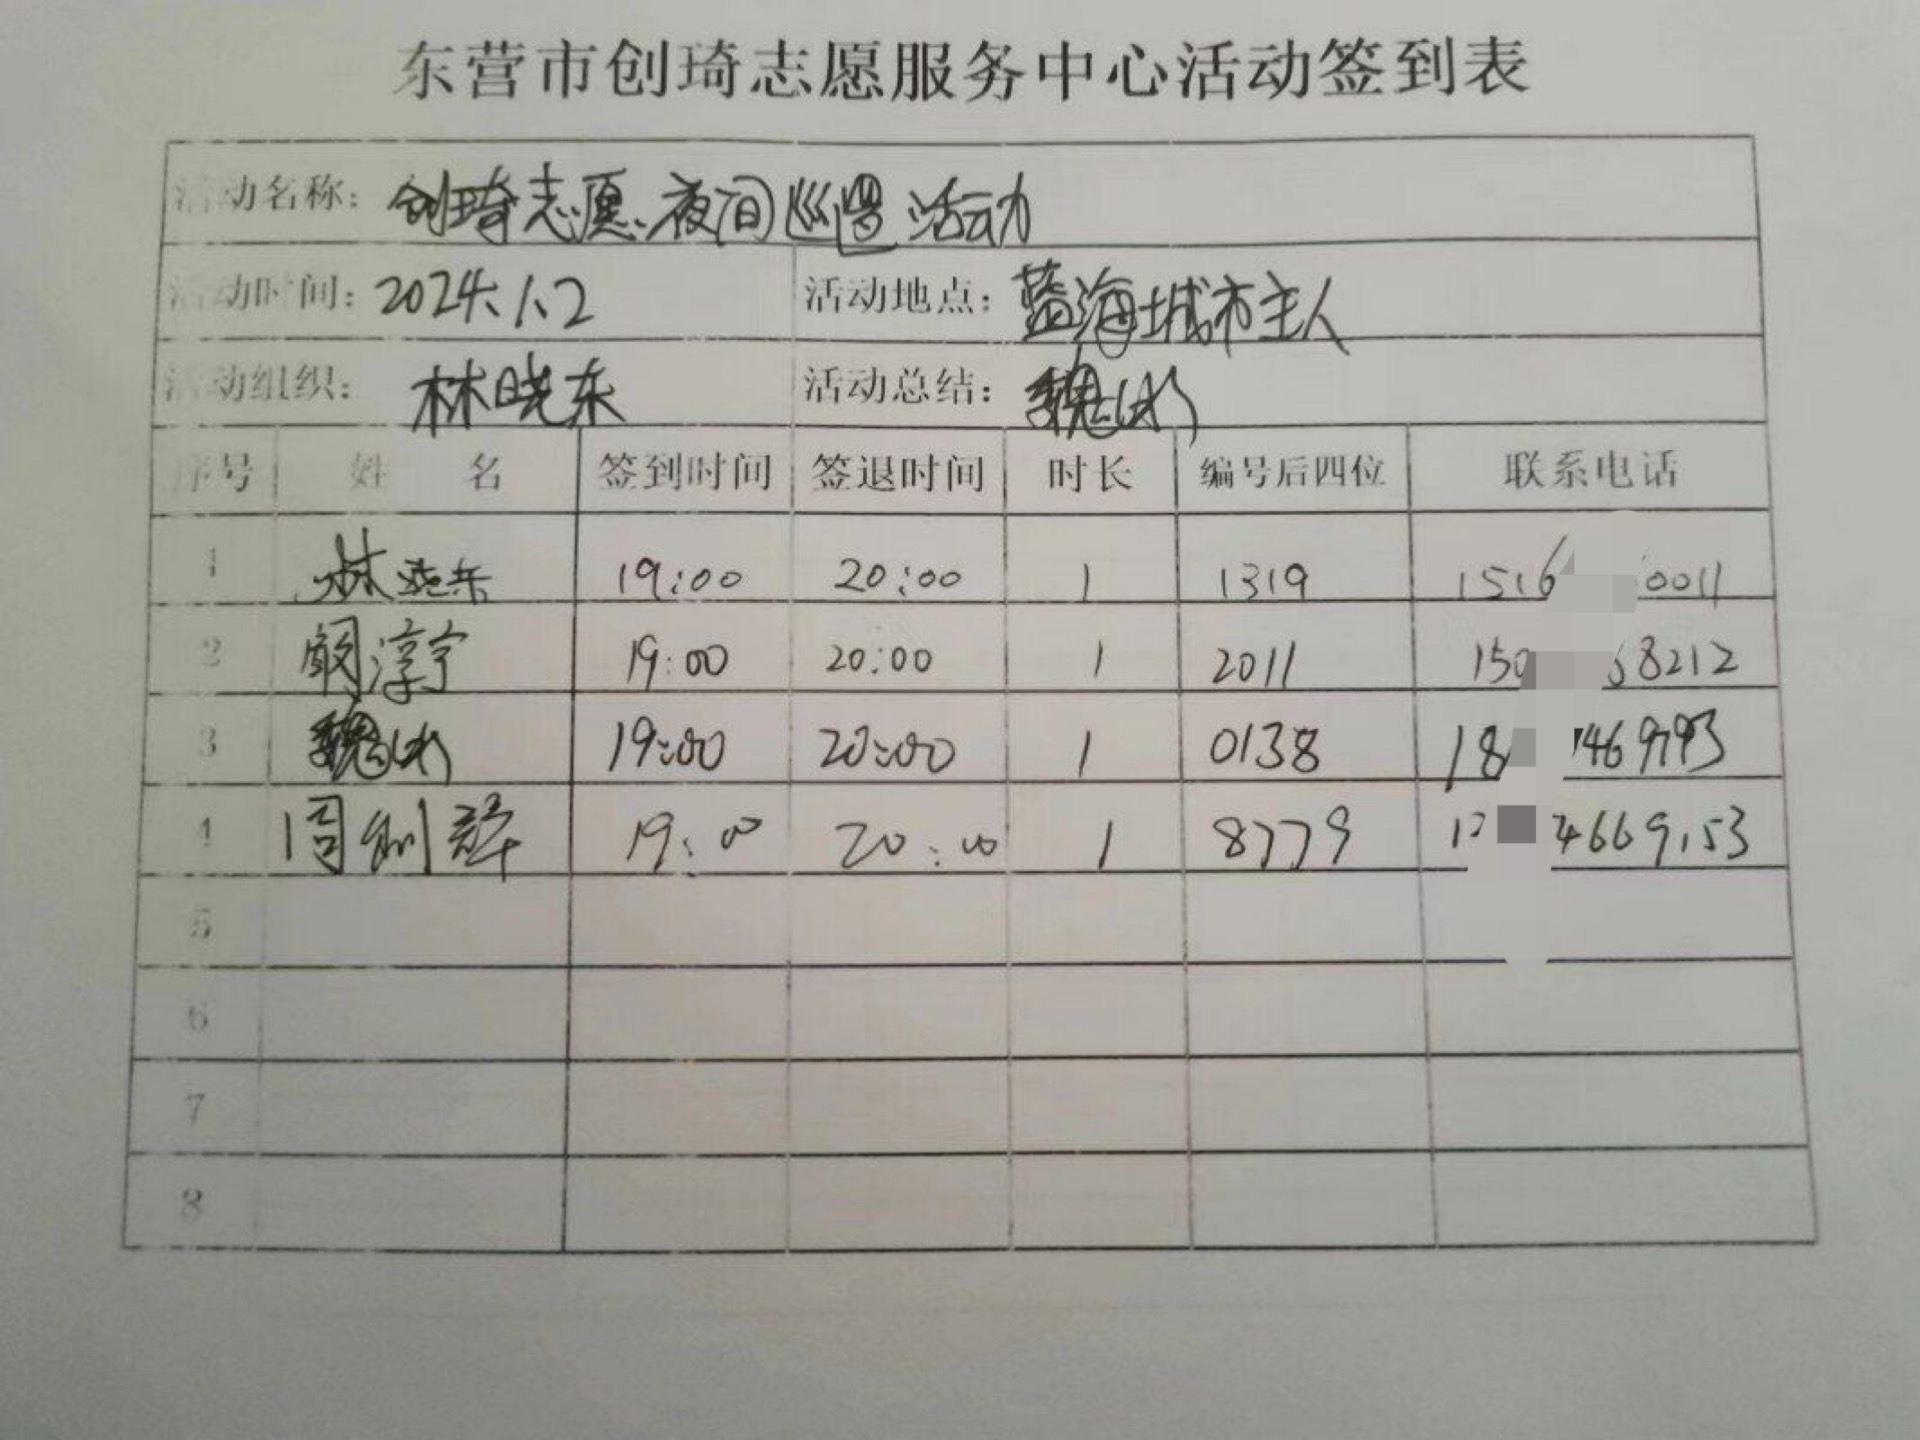 东营市创琦志愿服务中心活动签到表
活动名称：创琦志愿夜间巡逻活动
活动时间：2024.1.2 活动地点：蓝海城市主人
活动组织：林晓东 活动总结：魏
序号 姓 名 签到时间 签退时间 时长 编号后四位 联系电话
1 林晓东 19:00 20:00 1 1319 1516 0011
2 淳宁 19:00 20:00 1 2011 150 8212
3 魏 19:00 20:00 1 0138 18 469793
4 周 19:00 20:00 1 8779 4669153
5
6
7
8